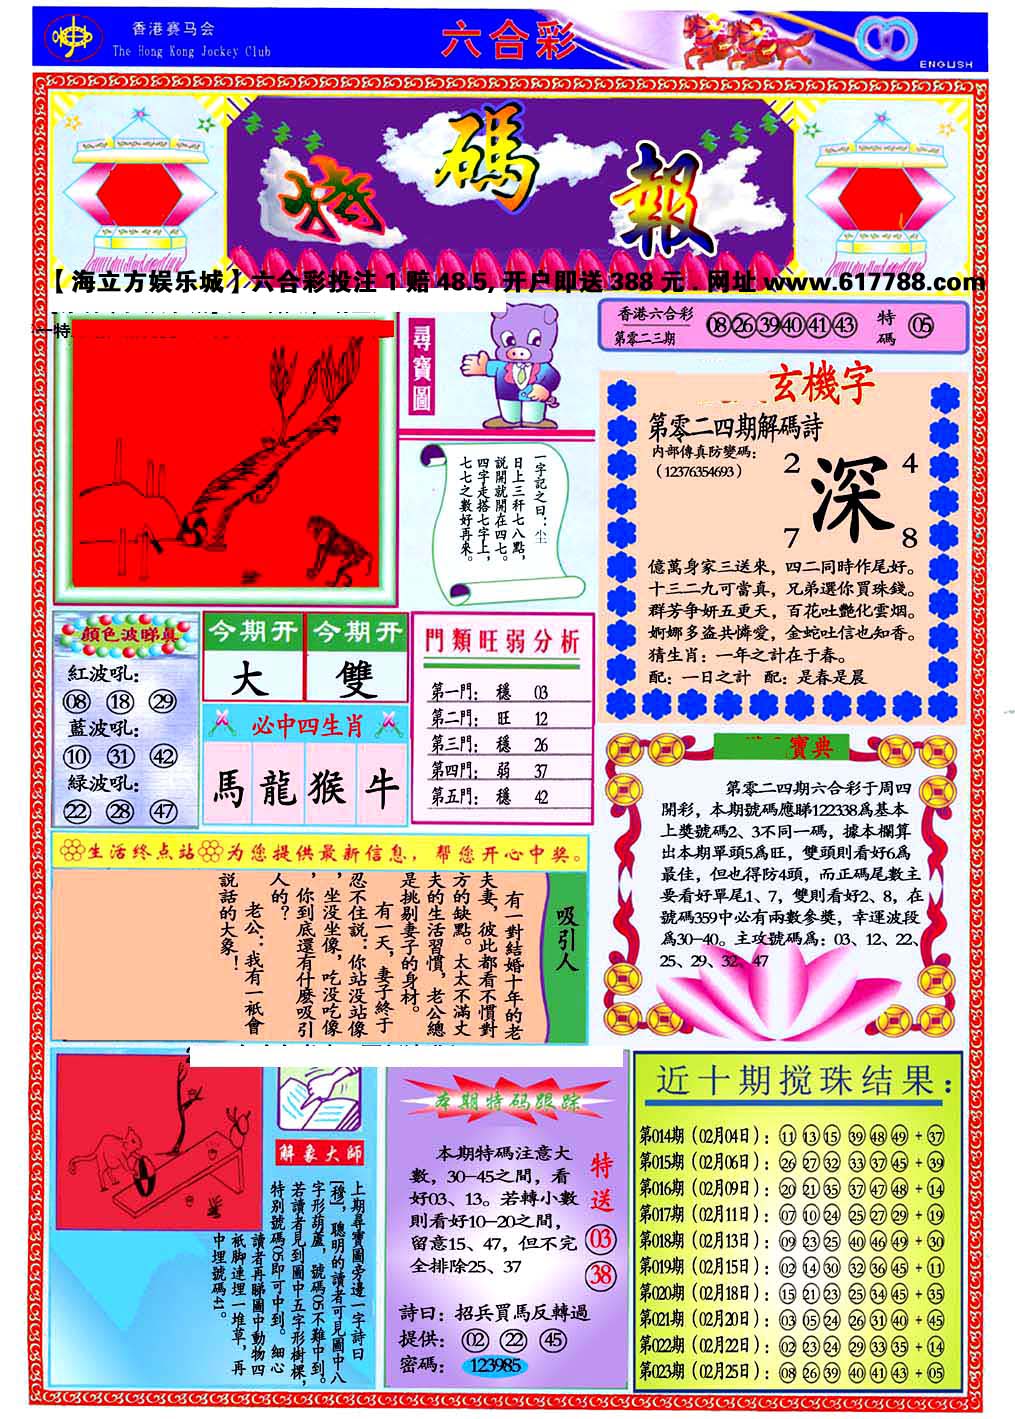 香港赛马会
The Hong Kong Jockey Club
六合彩
ENGLISH
特碼報
【海立方娱乐城】六合彩投注1赔48.5,开户即送388元.网址www.617788.com
尋寶圖
一字記之曰：尘
日上三秆七八點，
説開就開在四七。
四字走搭七字上，
七七之數好再來。
香港六合彩
第零二三期
08 26 39 40 41 43
特碼
05
玄機字
第零二四期解碼詩
内部傳真防變碼：
（12376354693）
2 4
深
7 8
億萬身家三送來，四二同時作尾好。
十三二九可當真，兄弟選你買珠錢。
群芳争妍五更天，百花吐艷化雲烟。
婀娜多盗共憐愛，金蛇吐信也知香。
猜生肖：一年之計在于春。
配：一日之計 配：是春是晨
顔色波睇真
紅波吼：
08 18 29
藍波吼：
10 31 42
緑波吼：
22 28 47
今期开 今期开
大 雙
必中四生肖
馬 龍 猴 牛
門類旺弱分析
第一門： 穩 03
第二門： 旺 12
第三門： 穩 26
第四門： 弱 37
第五門： 穩 42
寶典
第零二四期六合彩于周四
開彩，本期號碼應睇122338爲基本
上獎號碼2、3不同一碼，據本欄算
出本期單頭5爲旺，雙頭則看好6爲
最佳，但也得防4頭，而正碼尾數主
要看好單尾1、7，雙則看好2、8，在
號碼359中必有兩數參獎，幸運波段
爲30-40。主攻號碼爲：03、12、22、
25、29、32、47
生活终点站 为您提供最新信息，帮您开心中奖。
吸引人
有一對結婚十年的老
夫妻，彼此都看不慣對
方的缺點。太太不滿丈
夫的生活習慣，老公總
是挑剔妻子的身材。
有一天，妻子終于
忍不住説：你站没站像
，坐没坐像，吃没吃像
，你到底還有什麽吸引
人的？
老公：我有一衹會
説話的大象！
解象大師
上期尋寶圖旁邊一字詩曰
[穆]，聰明的讀者可見圖中八
字形葫蘆，號碼05不難中到。
若讀者見到圖中五字形樹棵，
特别號碼05即可中到。細心
讀者再睇圖中動物四
衹脚連埋一堆草，再
中埋號碼41。
本期特码跟踪
本期特碼注意大
數，30-45之間，看
好03、13。若轉小數
則看好10-20之間，
留意15、47，但不完
全排除25、37
特送
03
38
詩曰：招兵買馬反轉過
提供： 02 22 45
密碼： 123985
近十期搅珠结果：
第014期（02月04日）：11 13 15 39 48 49 + 37
第015期（02月06日）：26 27 32 33 37 45 + 39
第016期（02月09日）：20 21 35 37 47 48 + 14
第017期（02月11日）：07 10 24 25 27 29 + 19
第018期（02月13日）：09 23 25 40 46 49 + 30
第019期（02月15日）：02 14 30 32 36 45 + 11
第020期（02月18日）：15 21 23 25 34 45 + 35
第021期（02月20日）：03 05 24 26 31 40 + 45
第022期（02月22日）：02 23 24 29 33 35 + 14
第023期（02月25日）：08 26 39 40 41 43 + 05